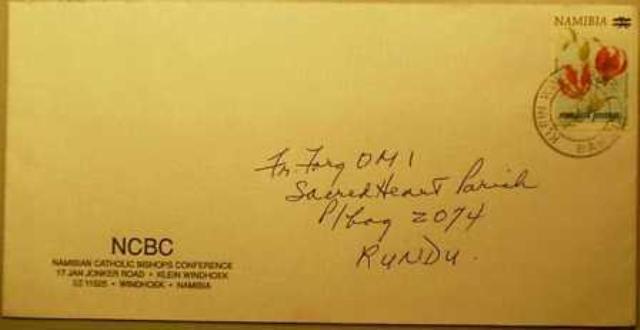 NAMIBIA
KLEIN WIN
Fr. Forg OMI
Sacred Heart Parish
P/bag 2074
RUNDU.
NCBC
NAMIBIAN CATHOLIC BISHOPS CONFERENCE
17 JAN JONKER ROAD • KLEIN WINDHOEK
11525 • WINDHOEK • NAMIBIA